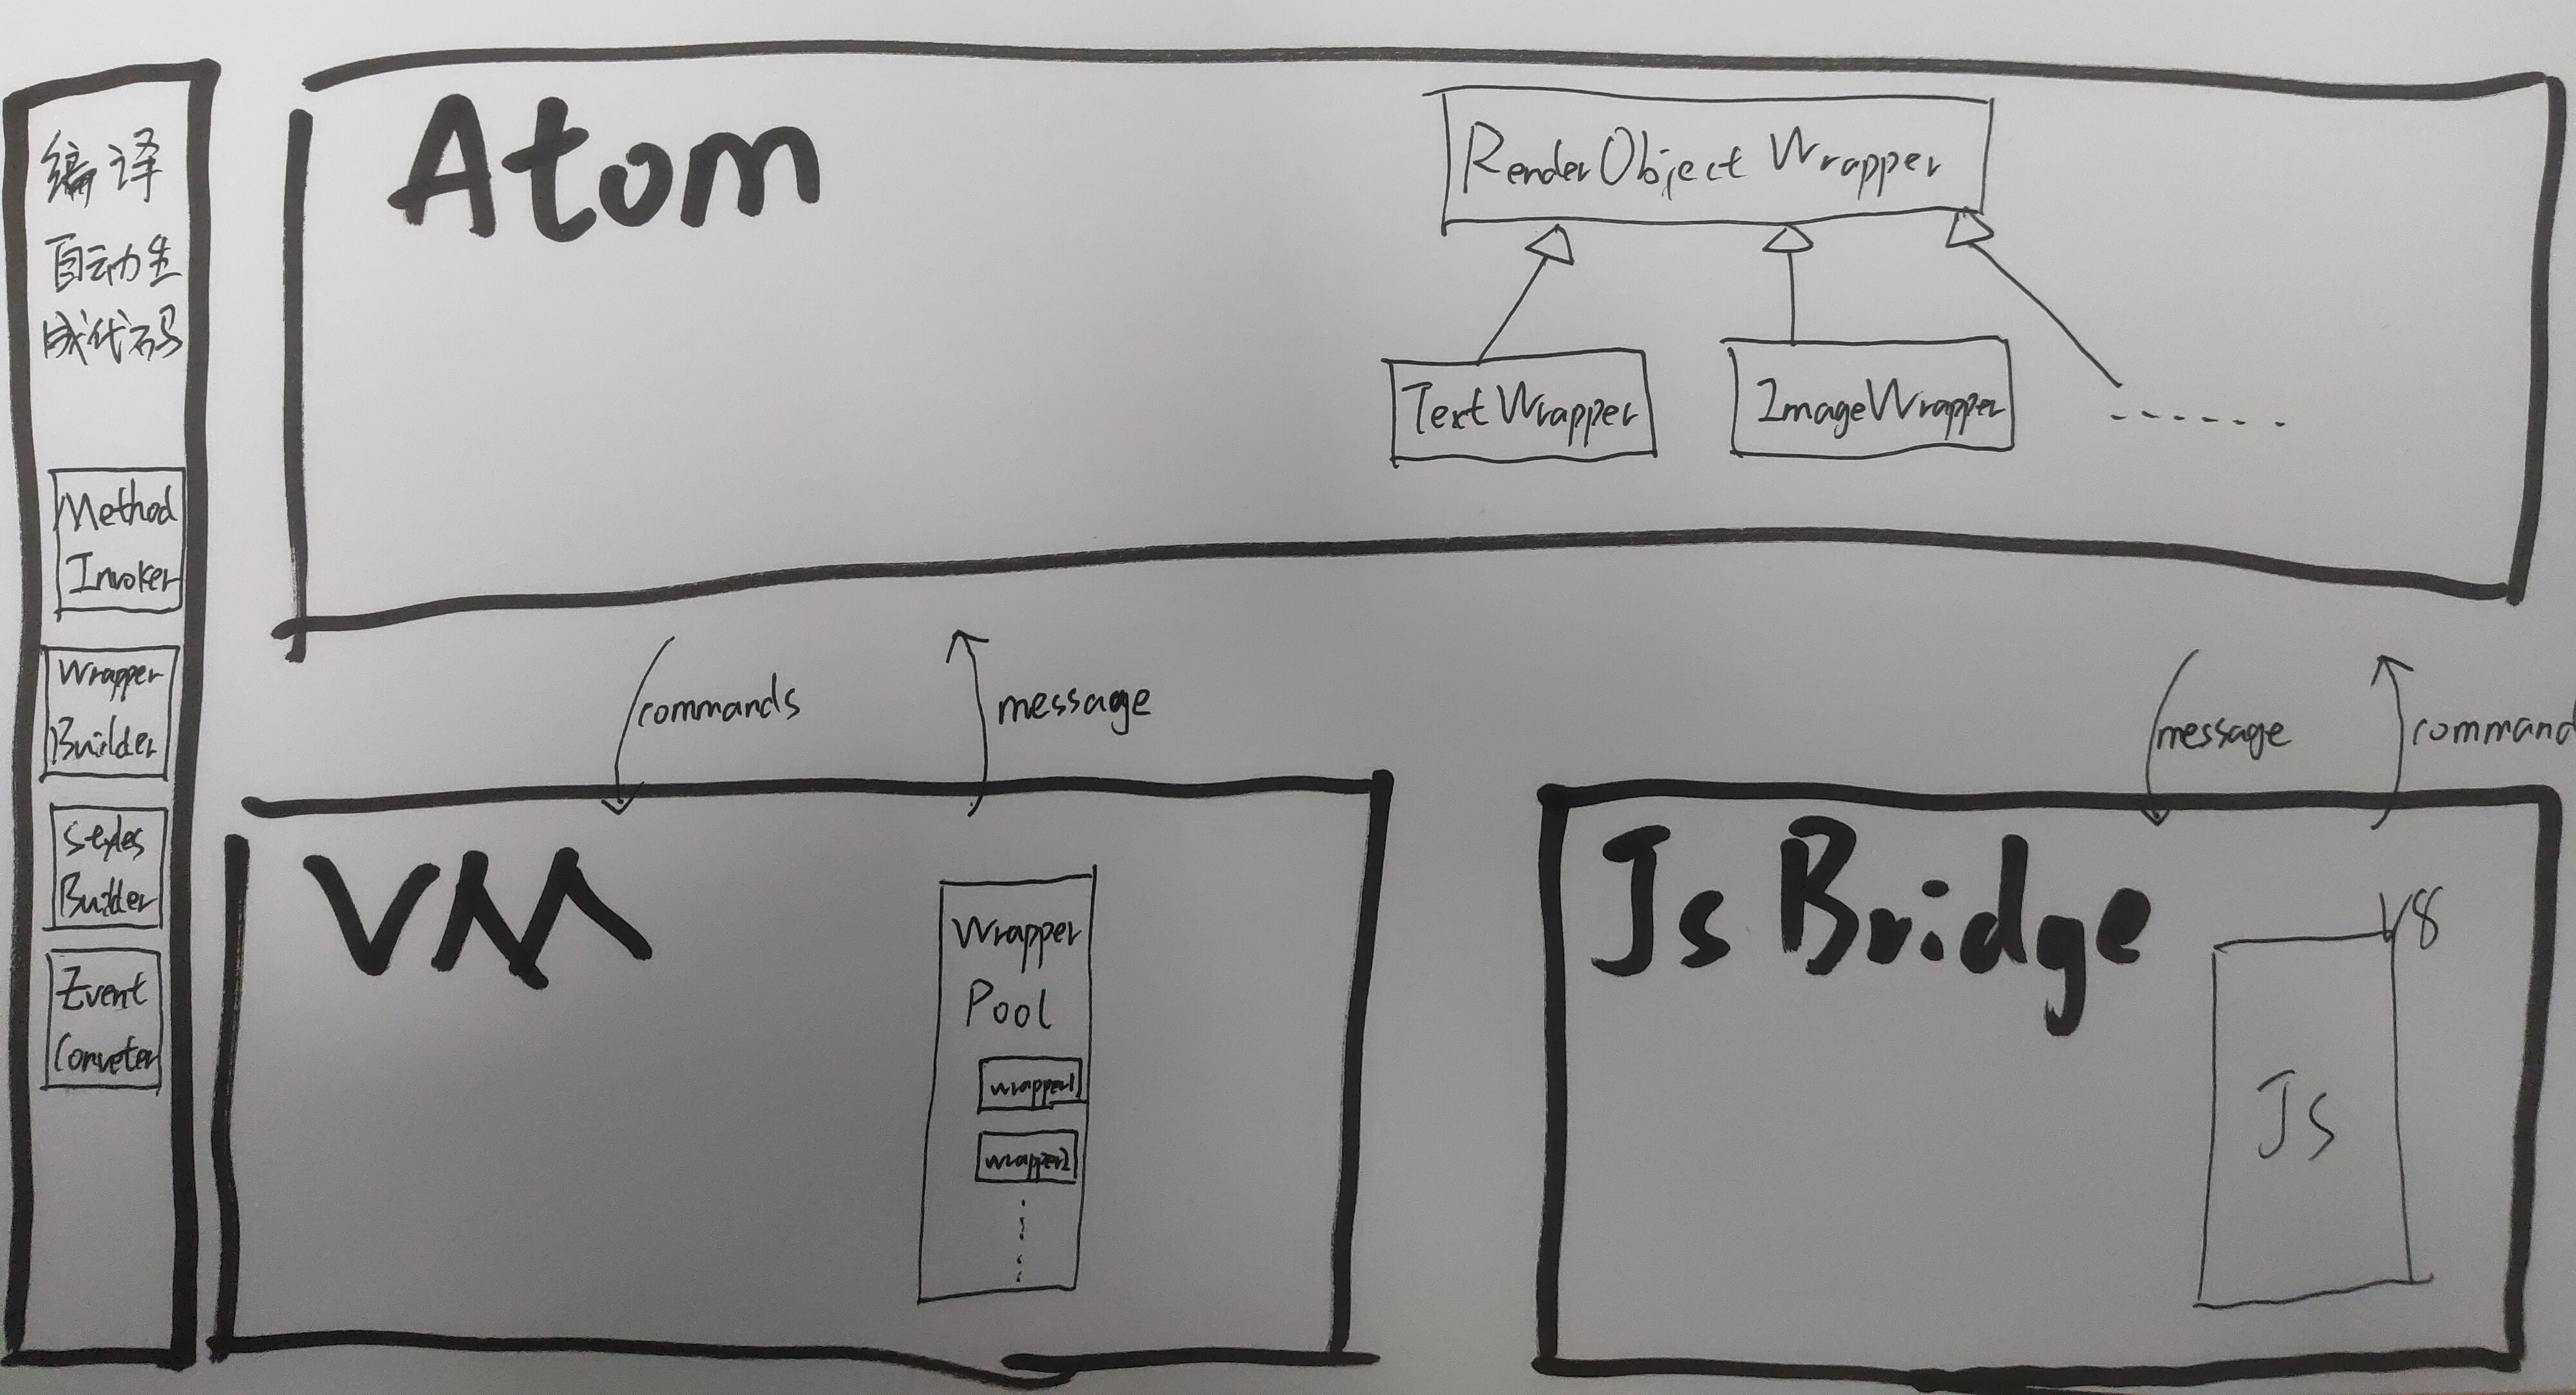 编译
自动生
成代码
Method
Invoker
Wrapper
Builder
Styles
Builder
Event
Conveter
Atom
RenderObject Wrapper
TextWrapper
ImageWrapper
......
commands
message
message
command
VM
Wrapper
Pool
wrapper1
wrapper2
Js Bridge
V8
Js